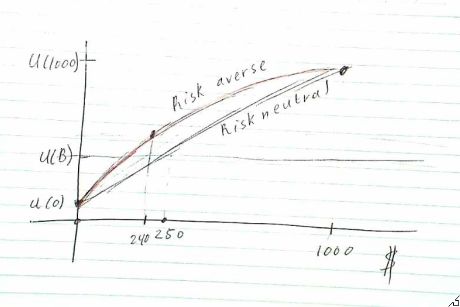 U(1000)
Risk averse
Risk neutral
U(B)
u(0)
240 250
1000
$